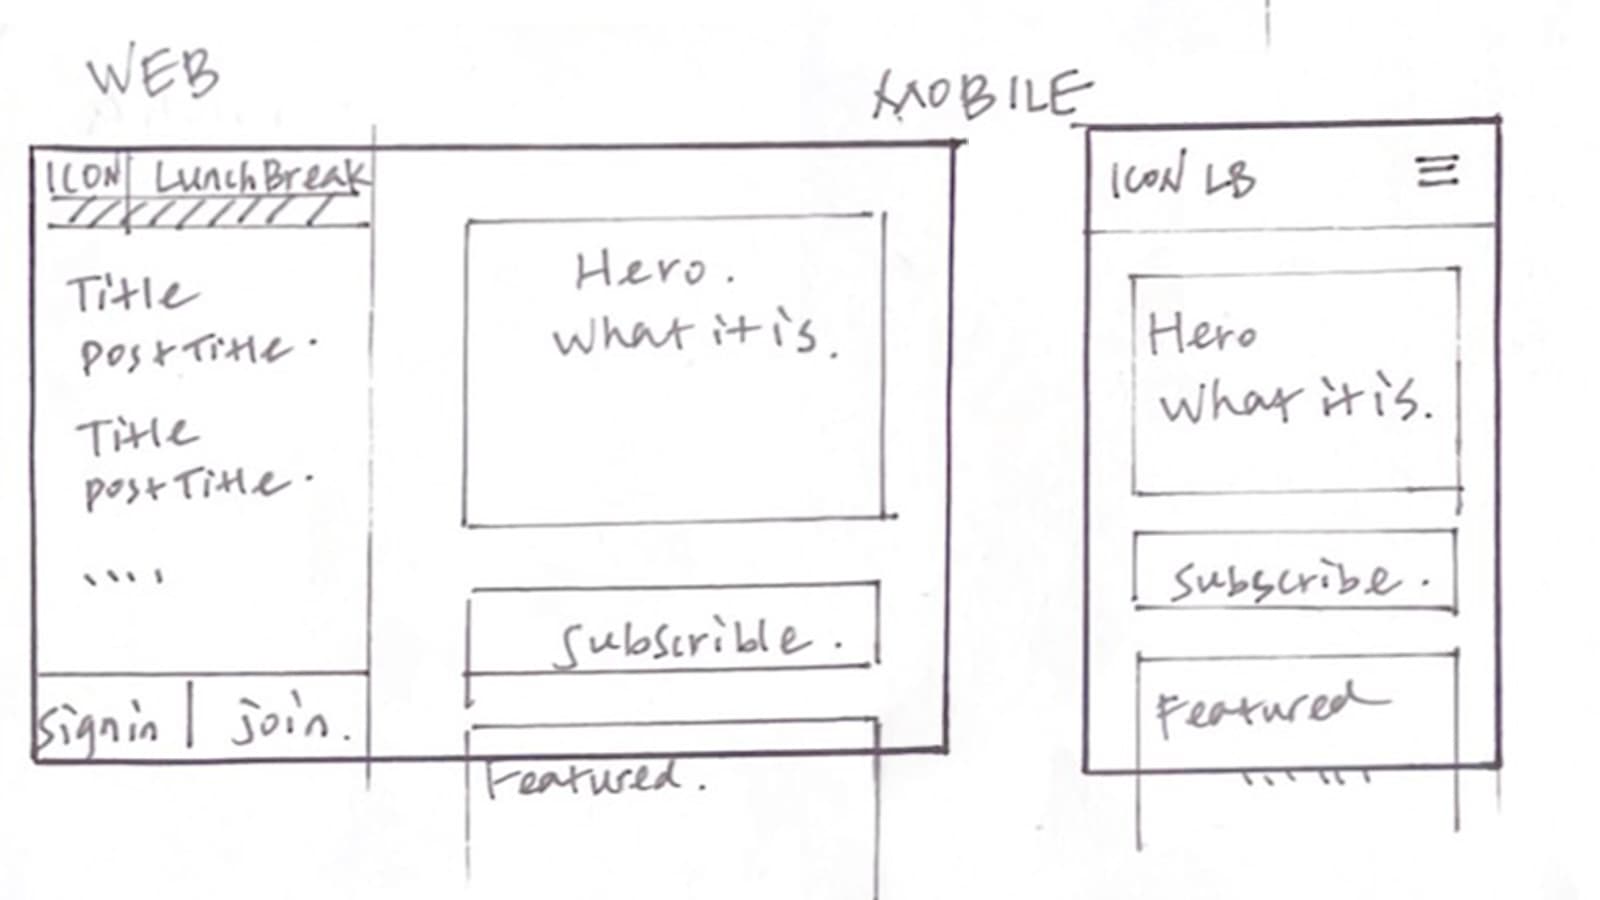 WEB
ICON LunchBreak
Title
postTitle.
Title
postTitle.
....
Sign in | join.
Hero.
what it is.
Subscrible.
Featured.
MOBILE
ICON LB
Hero
what it is.
Subscribe.
Featured